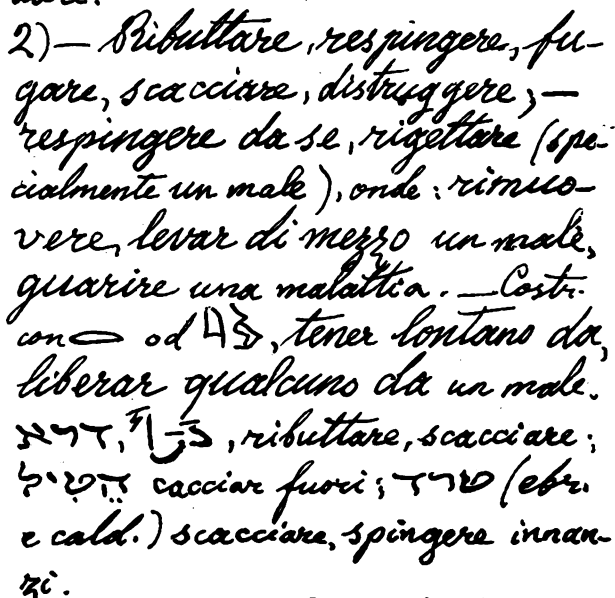 2)— Ributtare, respingere, fu-
gare, scacciare, distruggere; —
respingere da se, rigettare (spe-
cialmente un male), onde: rimuo-
vere, levar di mezzo un male,
guarire una malattia. — Costr.
con 𓂋 od , tener lontano da,
liberar qualcuno da un male.
דרא, درأ, ributtare, scacciare;
הֵטִיל cacciar fuori; טרד (ebr.
e cald.) scacciare, spingere innan-
zi.